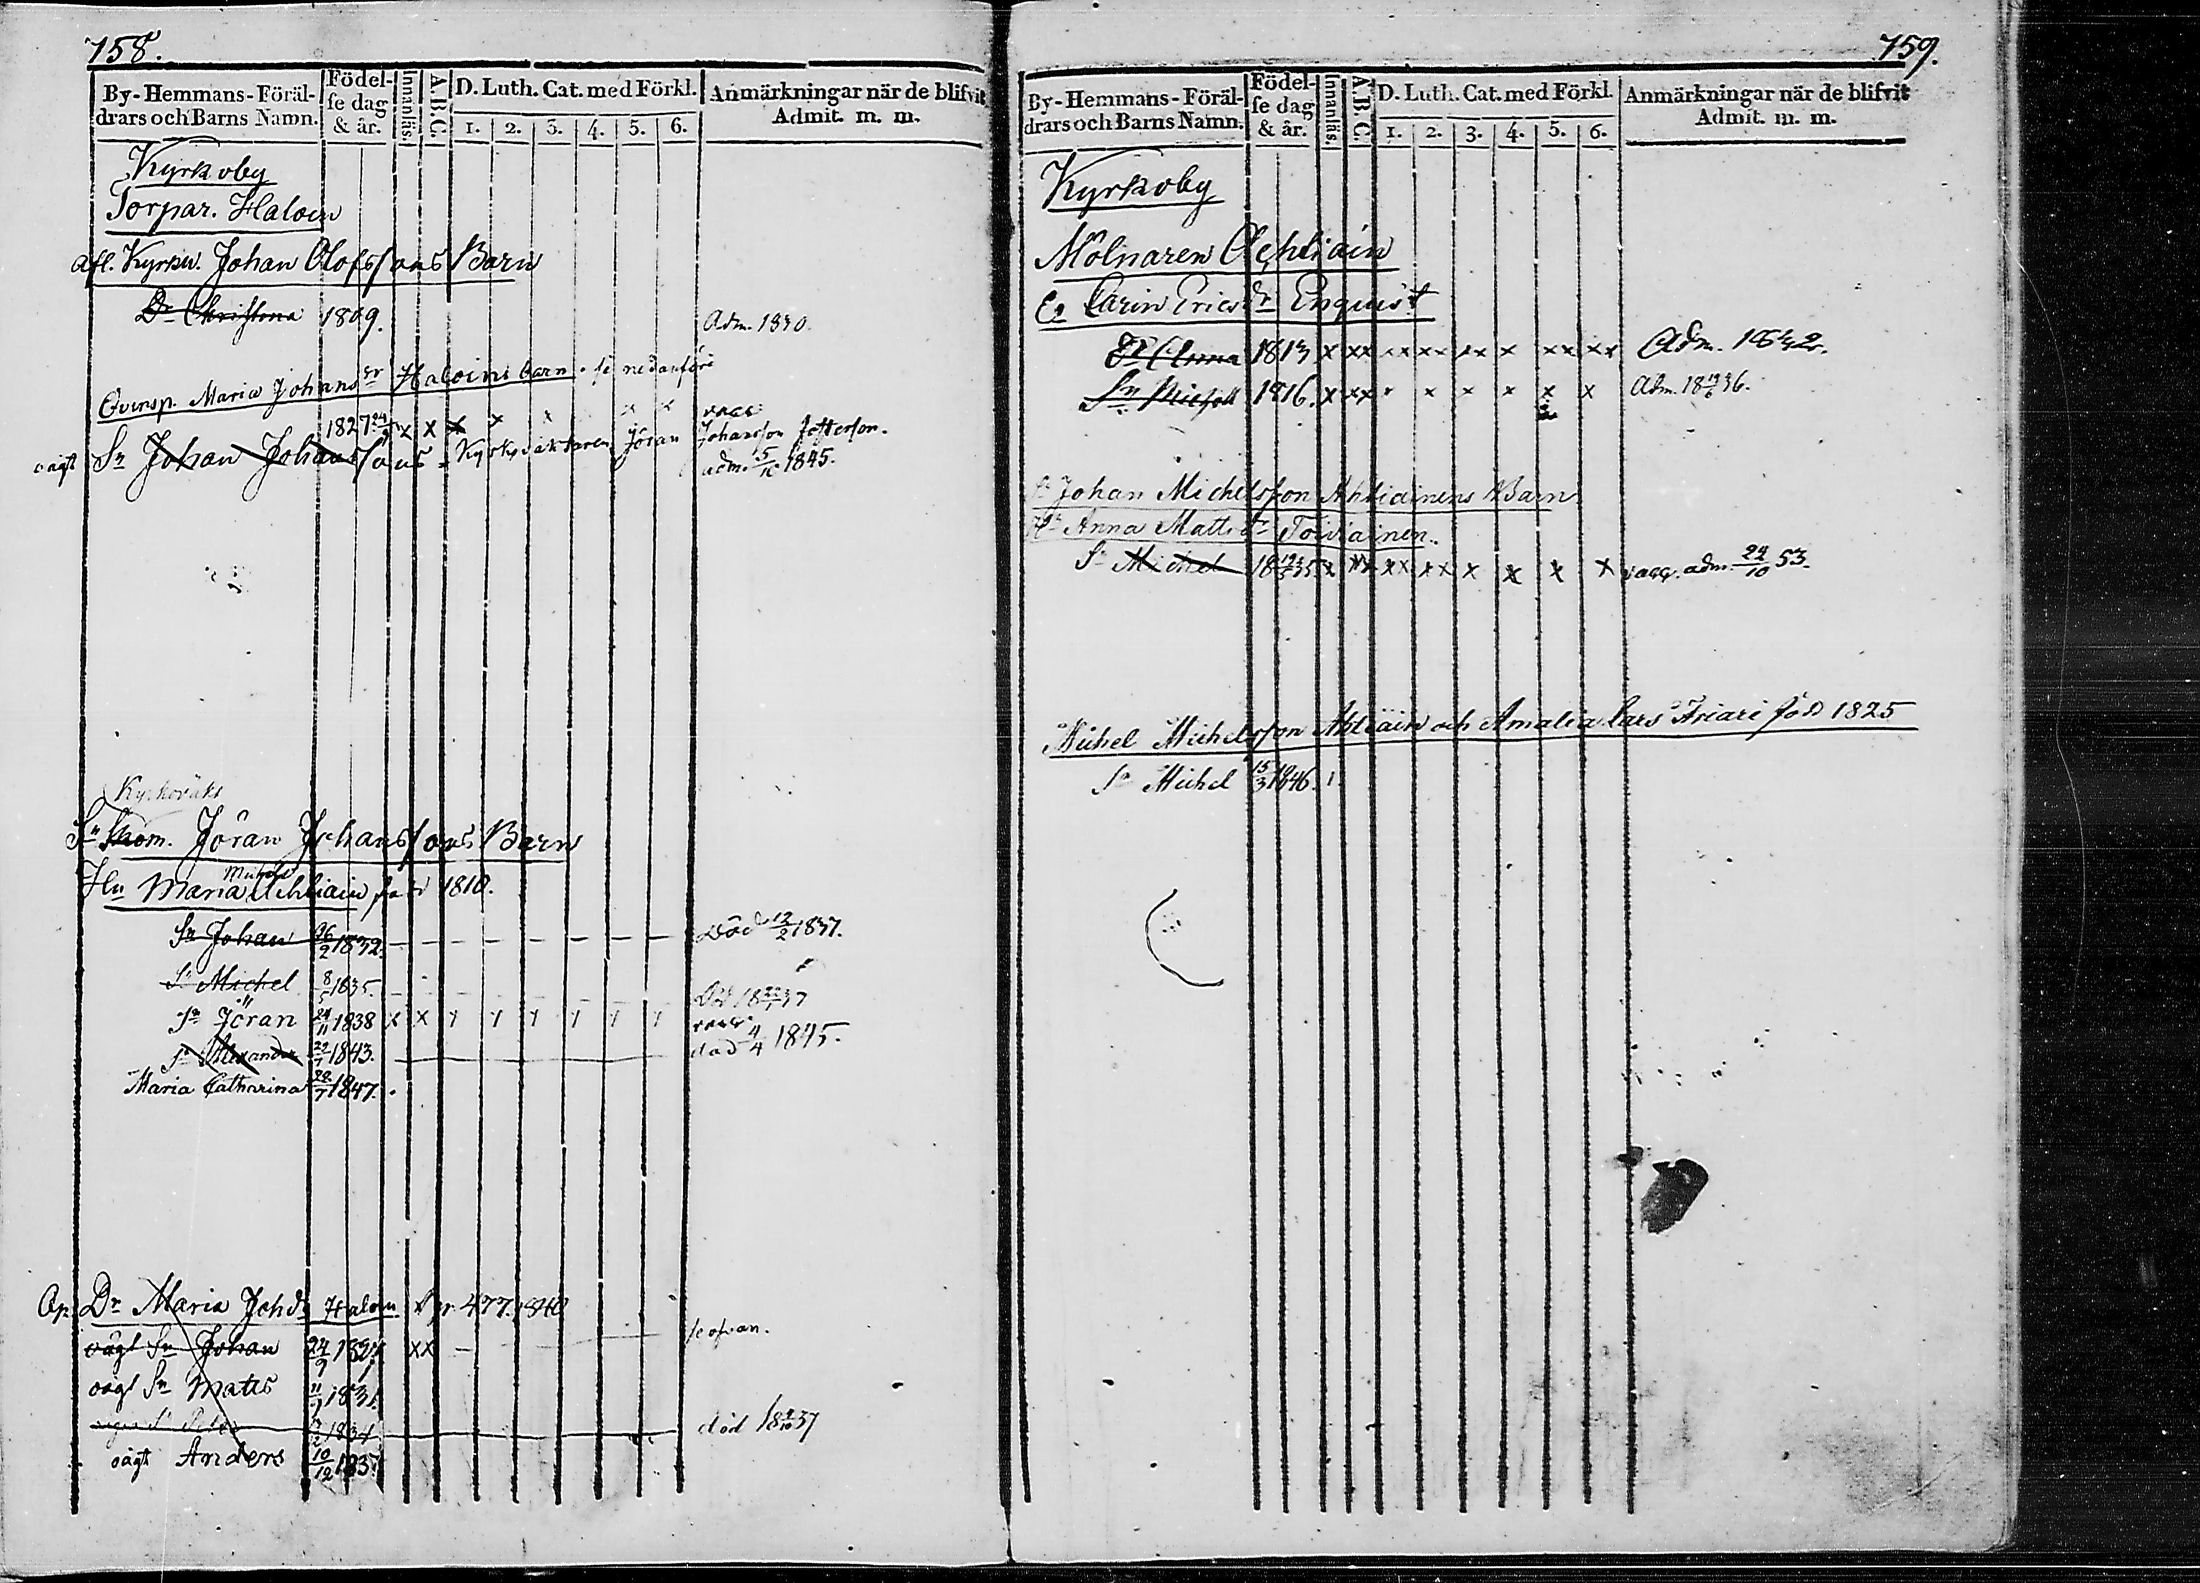 758.
By-Hemmans-Föräl-
drars och Barns Namn.
Födel-
se dag
& år.
Innanläs.
A.B.C.
D. Luth. Cat. med Förkl.
1. 2. 3. 4. 5. 6.
Anmärkningar när de blifvit
Admit. m. m.
Kyrkoby
Torpar. Haloin
Afl. Kyrkw. Johan Olofssons Barn
Dr Christina 1809. Adm. 1830.
Qvinsp. Maria Johansdr Haloins barn. se nedanföre
1827 24/9 x x x x x x x vacc.
oägt Sn Johan Johanssons - Kyrkväktaren Jöran Johansson fosterson.
adm. 5/10 1845.
Kyrkovakt
Sn Skom. Jöran Johanssons Barn
Hu Maria Ahliain född 1810.
Sn Johan 26/2 1832. Död 12/2 1837.
Sn Michel 8/5 1835. Död 18 37
Sn Jöran 24/11 1838 x x vacc.
Sn Alexander 22/7 1843. död 4/4 1845.
Maria Catharina 28/7 1847.
Dr Maria Johdr Haloin 477. 1840
oägt Sn Johan 24/9 1827 xx se ofvan.
oägt Sn Mats 11/7 1831.
1834 död 18 37
oägt Anders 10/12 1837
759.
By-Hemmans-Föräl-
drars och Barns Namn.
Födel-
se dag
& år.
Innanläs.
A.B.C.
D. Luth. Cat. med Förkl.
1. 2. 3. 4. 5. 6.
Anmärkningar när de blifvit
Admit. m. m.
Kyrkoby
Mölnaren Ahliain
Carin Ericsdr Enquist
Dr Anna 1813 x xx xx xx xx x xx xx Adm. 1832.
Sn Michel 1816. x xx x x x x x x Adm. 18 36.
Sn Johan Michelsson Ahliainens Barn
Hu Anna Mattsdr Toiviainen.
Sn Michel 18 35. x xx xx xx x x x x vacc. adm. 24/10 53.
Michel Michelsson Ahliain och Amalia Lars Friari född 1825
Sn Michel 15/3 1846. 1.